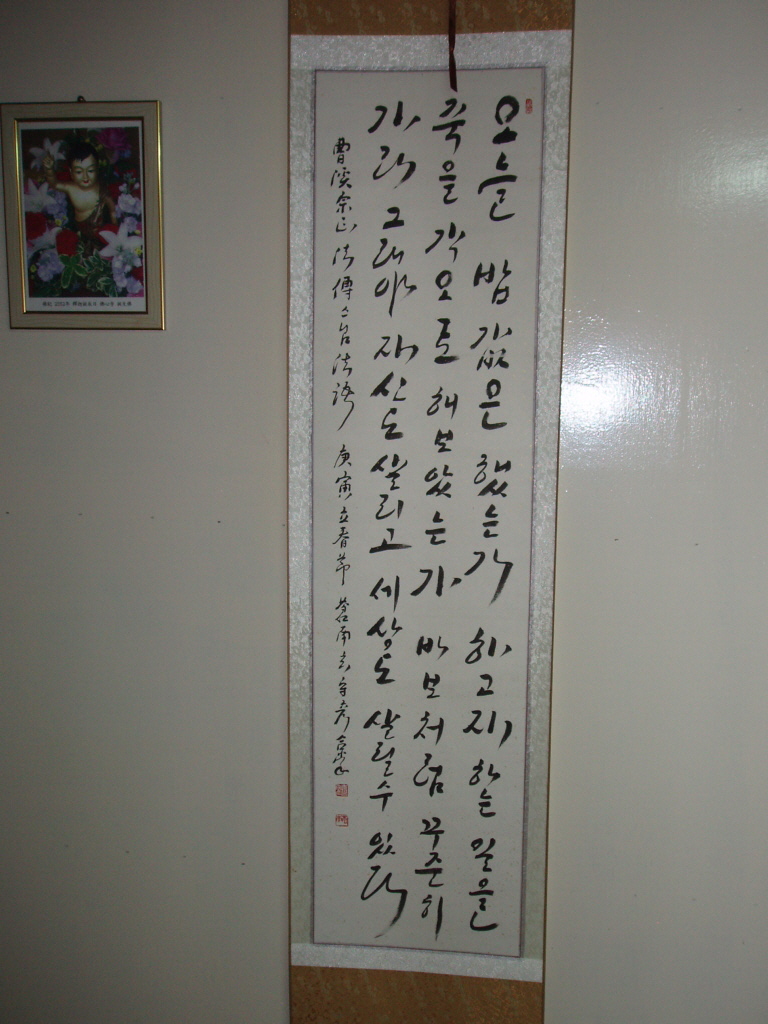 오늘 밥 값은 했는가 하고자 하는 일을
죽을 각오로 해보았는가 바보처럼 꾸준히
가라 그래야 자신도 살리고 세상도 살릴수 있다
曹溪宗正 法傳스님 法語 庚寅 立春節